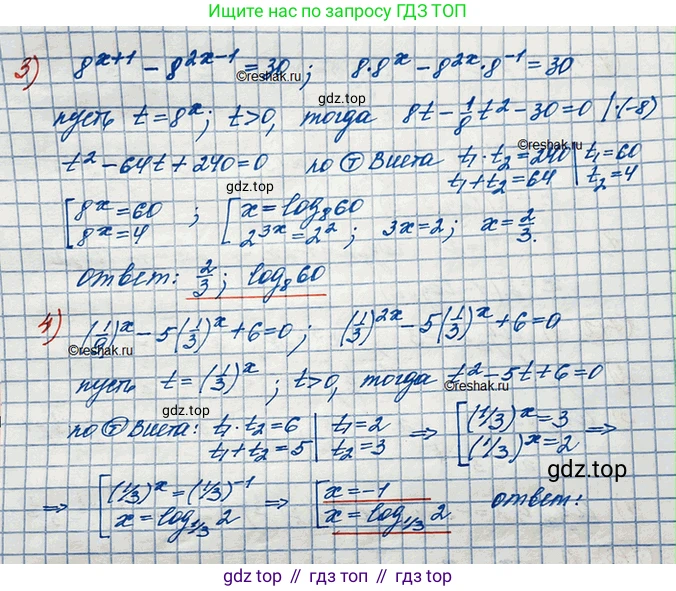 Ищите нас по запросу ГДЗ ТОП
3) 8^{x+1} − 8^{2x−1} = 30; 8·8^x − 8^{2x}·8^{−1} = 30
©reshak.ru
gdz.top
пусть t = 8^x; t>0, тогда 8t − 1/8 t² − 30 = 0 |·(−8)
©reshak.ru
t² − 64t + 240 = 0 по Ⓣ Виета t₁·t₂ = 240 | t₁ = 60
t₁+t₂ = 64 | t₂ = 4
gdz.top
[ 8^x = 60 ; [ x = log₈60
8^x = 4 2^{3x} = 2²; 3x = 2; x = 2/3.
ответ: 2/3; log₈60
4) (1/9)^x − 5(1/3)^x + 6 = 0; (1/3)^{2x} − 5(1/3)^x + 6 = 0
©reshak.ru
пусть t = (1/3)^x; t>0, тогда t² − 5t + 6 = 0
©reshak.ru
gdz.top
по Ⓣ Виета: t₁·t₂ = 6 | t₁ = 2 ⇒ [ (1/3)^x = 3 ⇒
t₁+t₂ = 5 | t₂ = 3 (1/3)^x = 2
gdz.top
⇒ [ (1/3)^x = (1/3)^{−1} ⇒ [ x = −1 ответ!
x = log_{1/3} 2 x = log_{1/3} 2
gdz.top // гдз топ // gdz.top